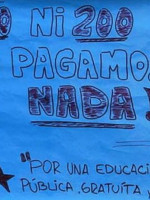 NI 200
PAGAMOS
NADA!
"POR UNA EDUCACI
PÚBLICA, GRATUITA Y